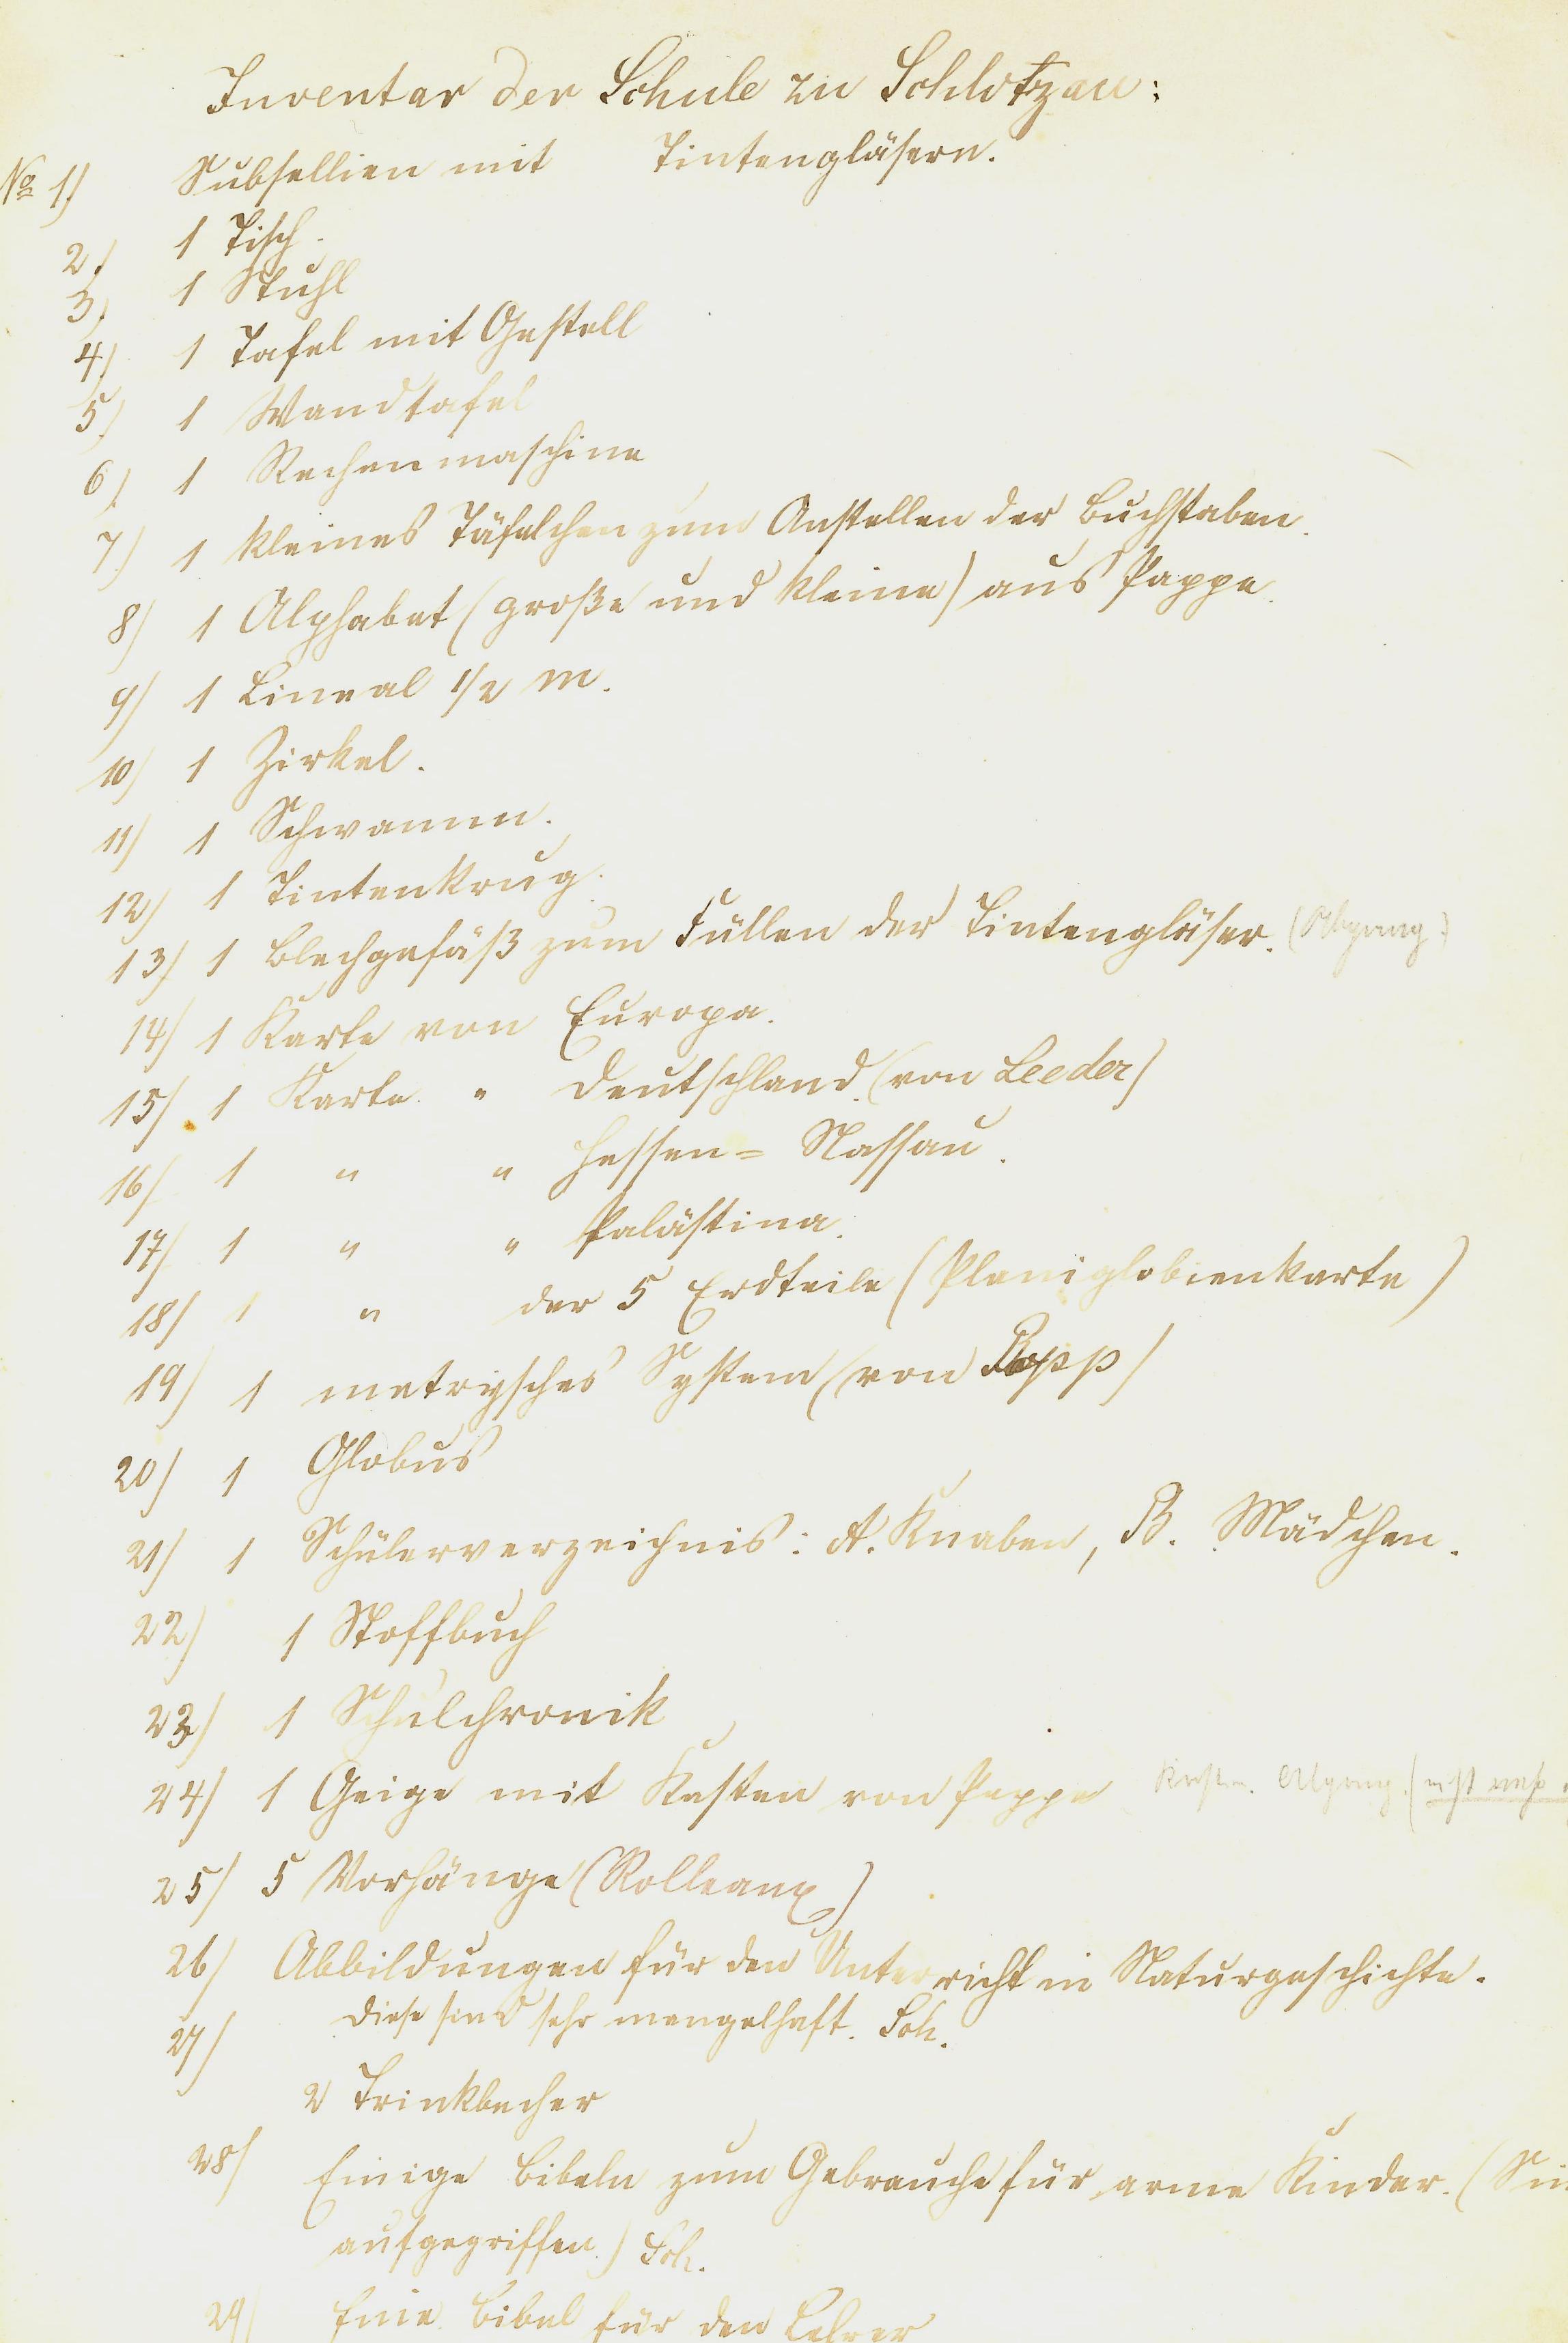 Inventar der Schule zu Schlotzau:
No 1) Subsellien mit Tintengläsern.
2) 1 Tisch.
3) 1 Stuhl
4) 1 Tafel mit Gestell
5) 1 Wandtafel
6) 1 Rechenmaschine
7) 1 kleines Täfelchen zum Anstellen der Buchstaben.
8) 1 Alphabet (große und kleine) aus Pappe.
9) 1 Lineal 1/2 m.
10) 1 Zirkel.
11) 1 Schwamm.
12) 1 Tintenkrug.
13) 1 Blechgefäß zum Füllen der Tintengläser. (Abgang.)
14) 1 Karte von Europa.
15) 1 Karte " Deutschland (von Leeder)
16) 1 " " Hessen=Nassau.
17) 1 " " Palästina.
18) 1 " der 5 Erdteile (Planiglobienkarte)
19) 1 metrysches System (von Bopp)
20) 1 Globus
21) 1 Schülerverzeichnis: A. Knaben, B. Mädchen.
22) 1 Stoffbuch
23) 1 Schulchronik
24) 1 Geige mit Kasten von Pappe Kasten. Abgang.
25) 5 Vorhänge (Rolleaux)
26) Abbildungen für den Unterricht in Naturgeschichte.
Diese sind sehr mangelhaft. Sch.
27) 2 Trinkbecher
28) Einige Bibeln zum Gebrauche für arme Kinder.
aufgegriffen.) Sch.
29) Eine Bibel für den Lehrer